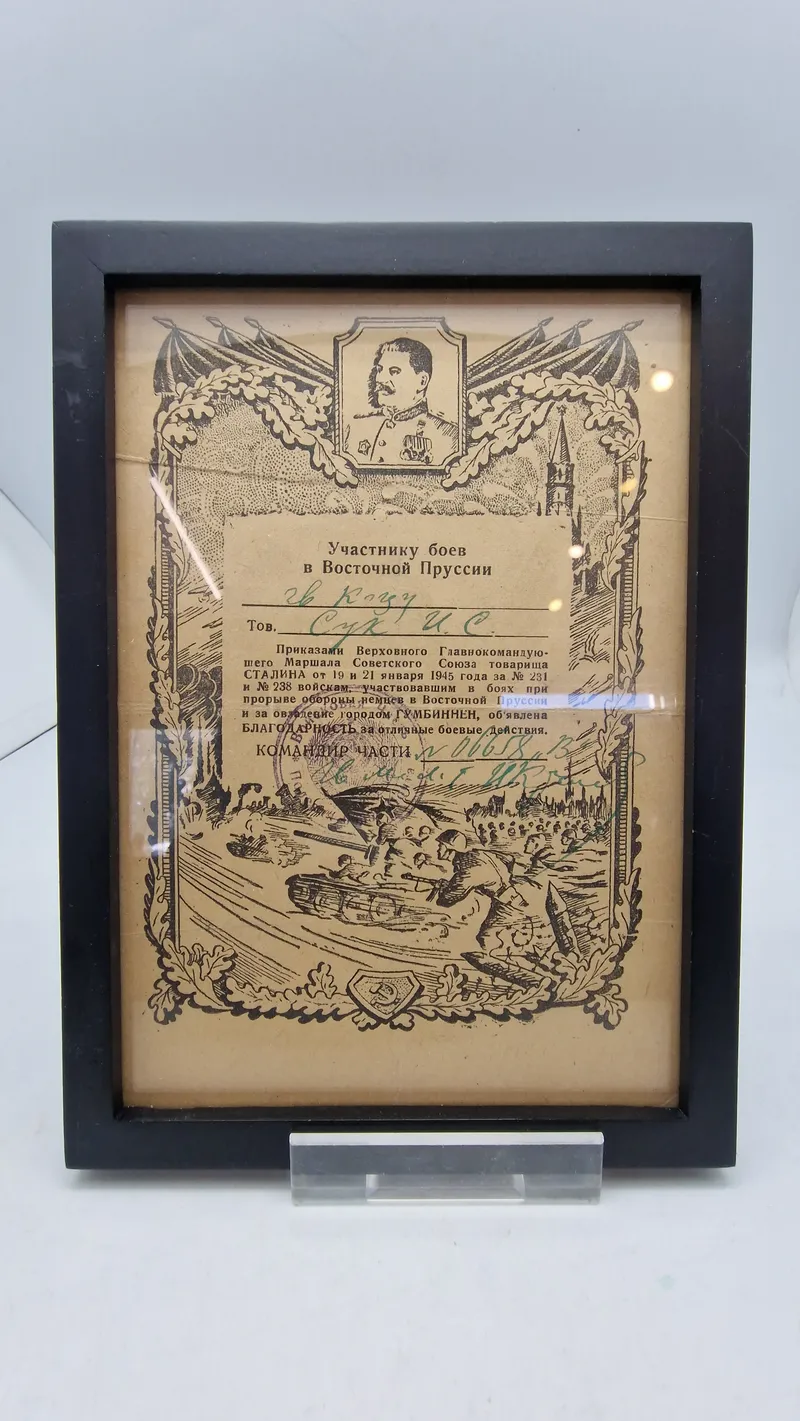 Участнику боев
в Восточной Пруссии
гв
Тов. Сук И. С.
Приказами Верховного Главнокомандую-
щего Маршала Советского Союза товарища
СТАЛИНА от 19 и 21 января 1945 года за № 231
и № 238 войскам, участвовавшим в боях при
прорыве обороны немцев в Восточной Пруссии
и за овладение городом ГУМБИННЕН, об'явлена
БЛАГОДАРНОСТЬ за отличные боевые действия.
КОМАНДИР ЧАСТИ
гв